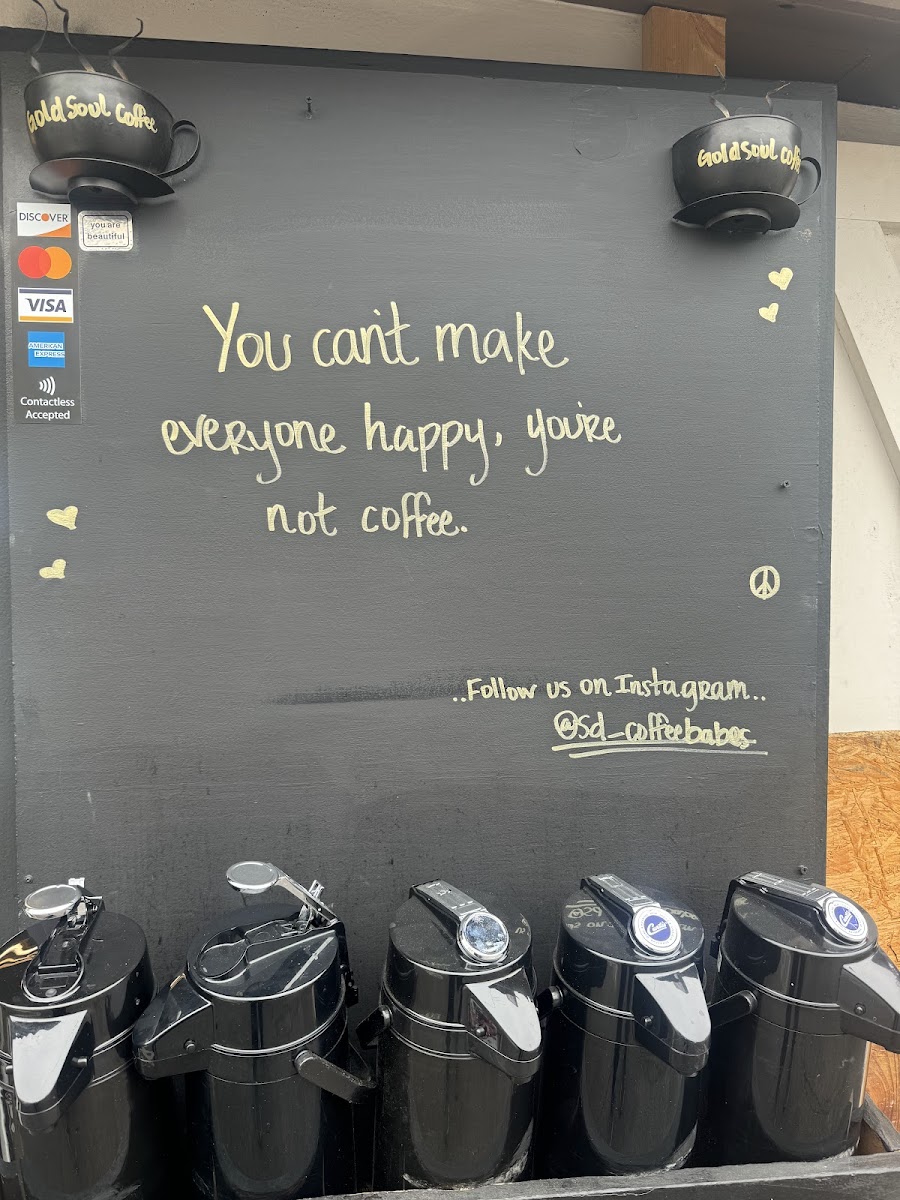 Gold Soul Coffee
Gold Soul Coffee
DISCOVER
you are
beautiful
VISA
AMERICAN
EXPRESS
Contactless
Accepted
You can't make
everyone happy, you're
not coffee.
..Follow us on Instagram..
@sd_coffeebabes
Curtis
Curtis